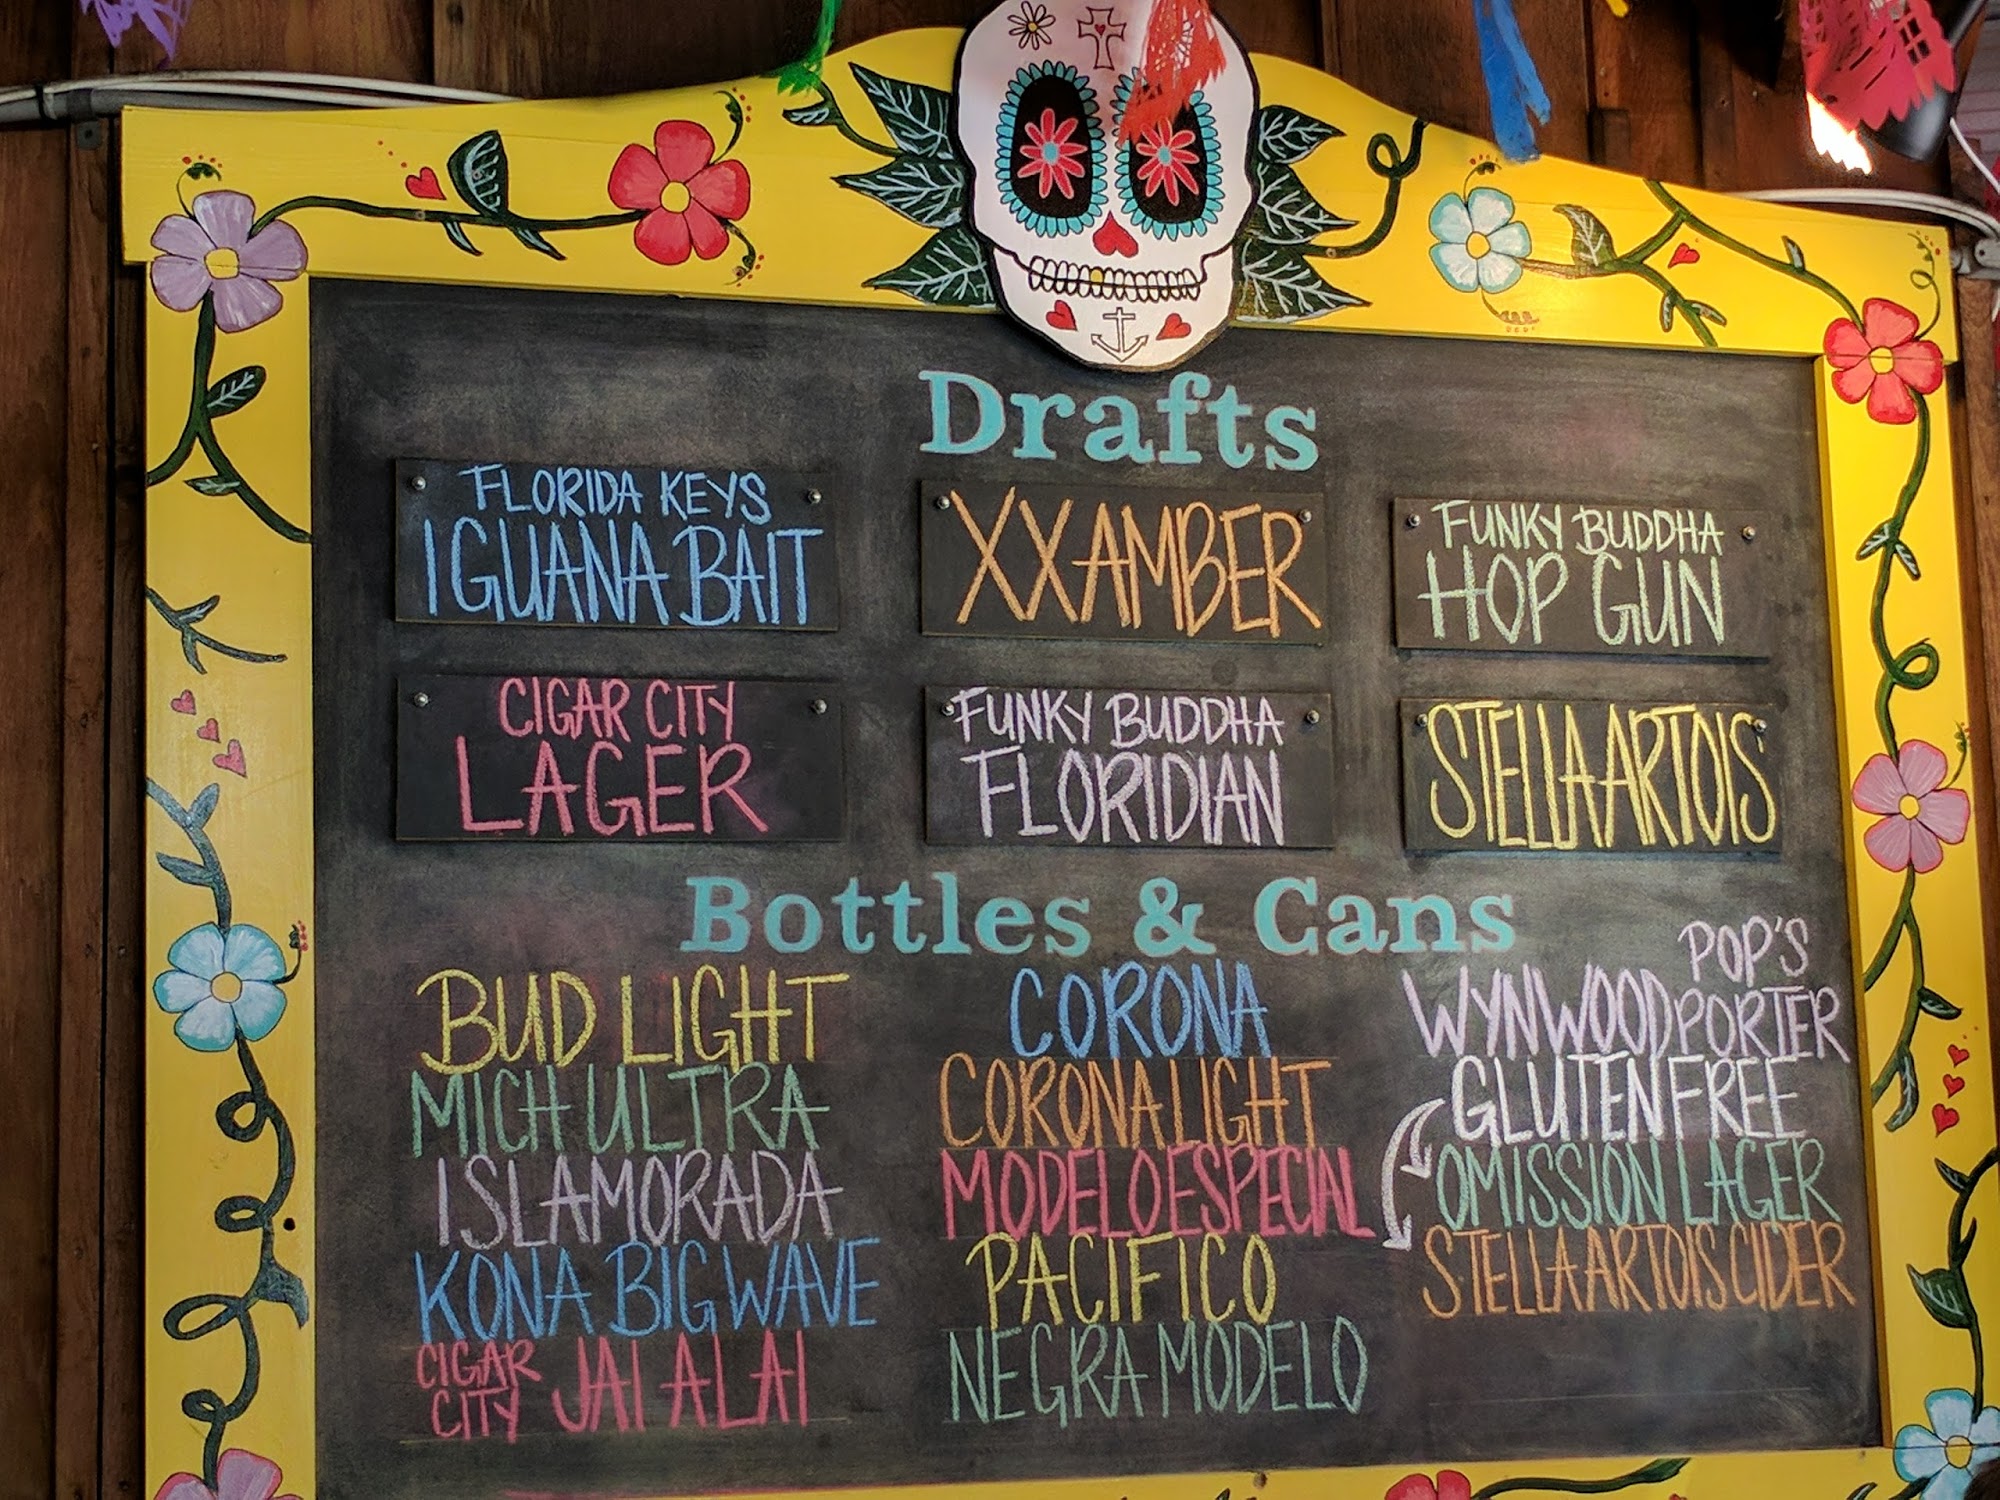 Drafts
FLORIDA KEYS
IGUANA BAIT
XX AMBER
FUNKY BUDDHA
HOP GUN
CIGAR CITY
LAGER
FUNKY BUDDHA
FLORIDIAN
STELLA ARTOIS
Bottles & Cans
BUD LIGHT
MICH ULTRA
ISLAMORADA
KONA BIG WAVE
CIGAR
CITY JAI ALAI
CORONA
CORONA LIGHT
MODELO ESPECIAL
PACIFICO
NEGRA MODELO
POP'S
WYNWOOD PORTER
GLUTEN FREE
OMISSION LAGER
STELLA ARTOIS CIDER